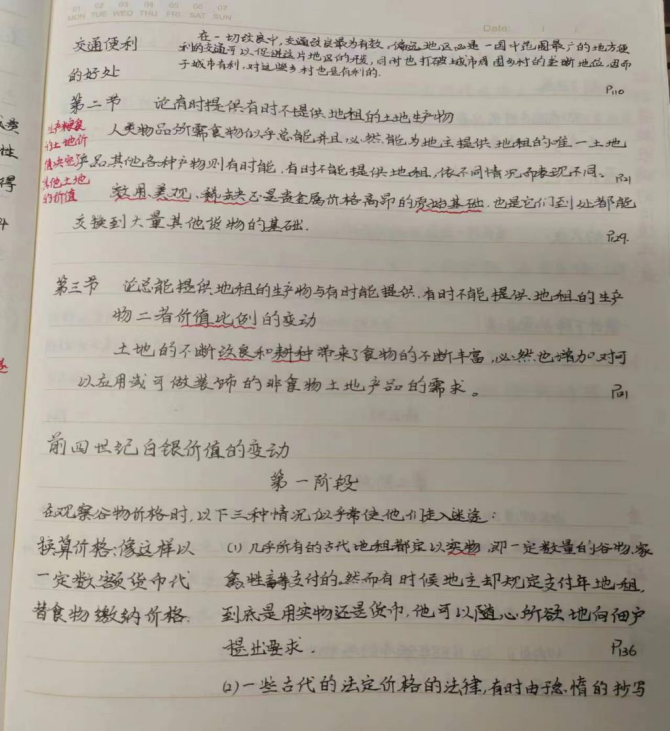 01 02 03 04 05 06 07
MON TUE WED THU FRI SAT SUN
Date: / /
交通便利
的好处
在一切改良中,交通改良最为有效,偏远地区必是一国中范围最广的地方便
利的交通可以促进这片地区的开发,同时也打破城市周围乡村的垄断地位,因而
于城市有利,对这些乡村也是有利的.
P110
第二节 论有时提供有时不提供地租的土地生产物
生产粮食
的土地价
值决定
其他土地
的价值
人类物品所需食物似乎总能并且必然能为地主提供地租的唯一土地
产品,其他各种产物则有时能,有时不能提供地租,依不同情况而表现不同.
效用、美观、稀缺不是贵金属价格高昂的原始基础,也是它们到处都能
交换到大量其他货物的基础.
P129.
第三节 论总能提供地租的生产物与有时能提供,有时不能提供地租的生产
物二者价值比例的变动
土地的不断改良和耕种带来了食物的不断丰富,必然也增加对可
以应用或可做装饰的非食物土地产品的需求。
前四世纪白银价值的变动
第一阶段
在观察谷物价格时,以下三种情况似乎常使他们陷入迷途:
换算价格:像这样以
一定数额货币代
替食物缴纳价格.
(1) 几乎所有的古代地租都定以实物,即一定数量的谷物、家
禽、牲畜支付的.然而有时候地主却规定支付年地租,
到底是用实物还是货币,他可以随心所欲地向佃户
提出要求.
P136
(2)一些古代的法定价格的法律,有时由于怠惰的抄写